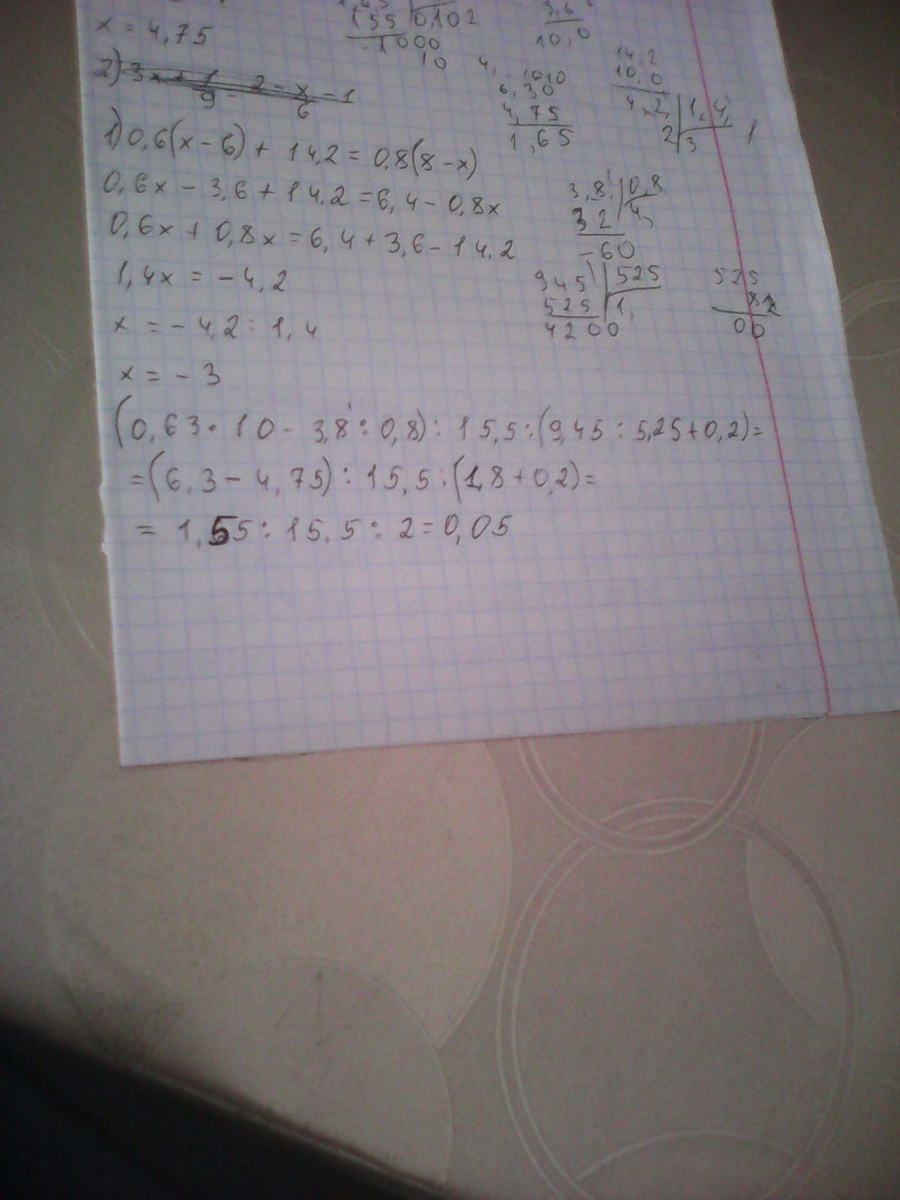 x = 4,75
155 0,102
-1000
10
3,6
10,0
1010
6,30
4,75
1,65
14,2
10,0
4,2, 1,4,
2 3
1) 0,6(x - 6) + 14,2 = 0,8(8 - x)
0,6x - 3,6 + 14,2 = 6,4 - 0,8x
0,6x + 0,8x = 6,4 + 3,6 - 14,2
1,4x = - 4,2
x = - 4,2 : 1,4
x = - 3
3,8, 0,8
32 4,
-60
945 525
525 1,
4200
525
00
(0,63 • 10 - 3,8 : 0,8) : 15,5 : (9,45 : 5,25 + 0,2) =
= (6,3 - 4,75) : 15,5 : (1,8 + 0,2) =
= 1,55 : 15,5 : 2 = 0,05